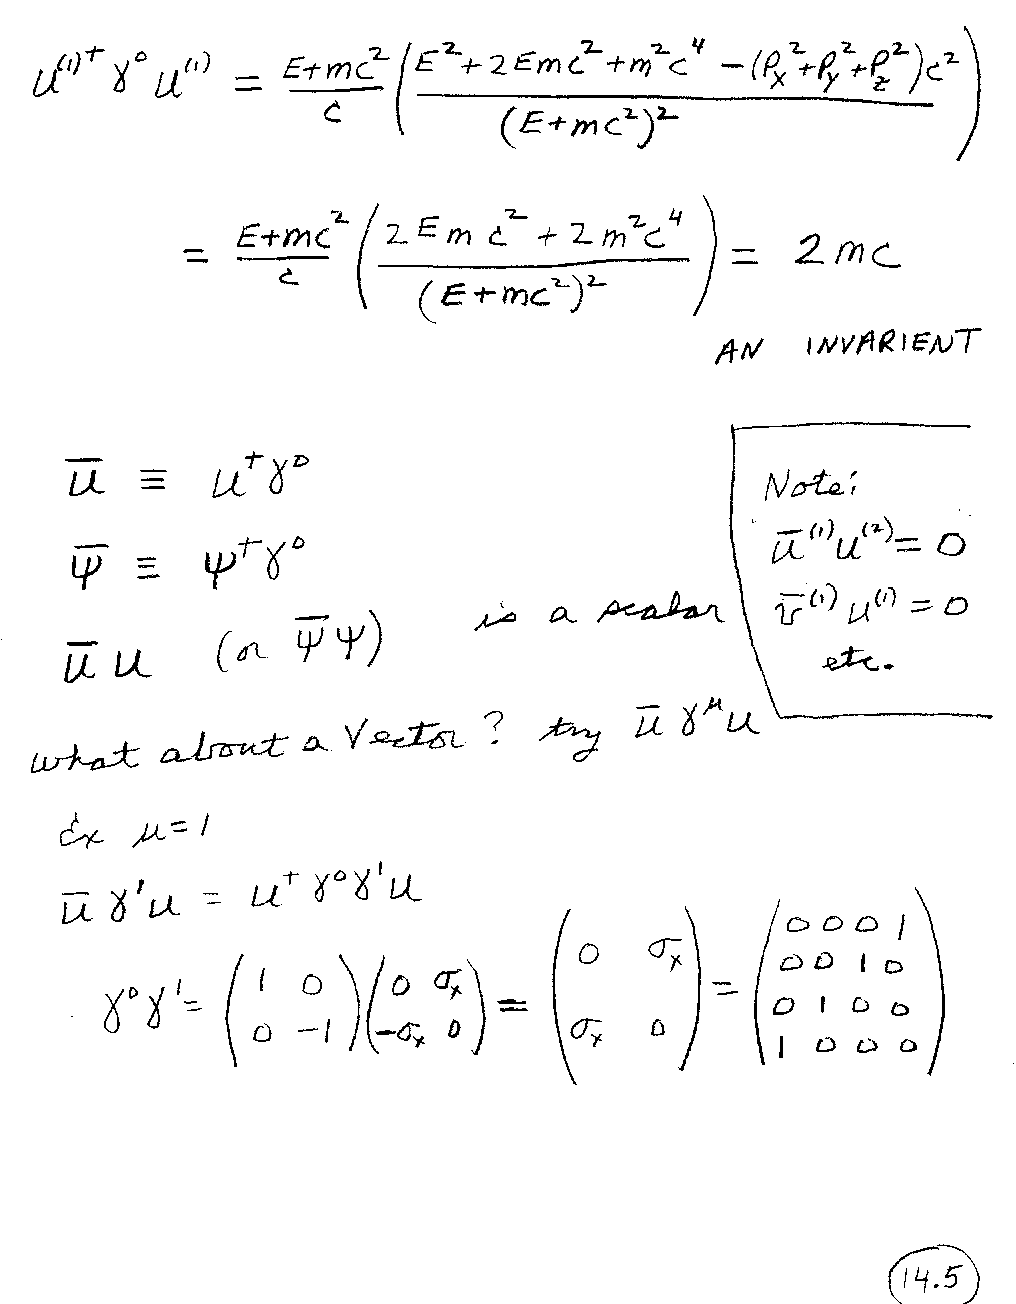 u⁽¹⁾† γ⁰ u⁽¹⁾ = (E+mc²)/c ( (E²+2Emc²+m²c⁴ −(Px²+Py²+Pz²)c²) / (E+mc²)² )
= (E+mc²)/c ( (2Emc²+2m²c⁴) / (E+mc²)² ) = 2mc
AN INVARIENT
ū ≡ u†γ⁰
ψ̄ ≡ ψ†γ⁰
ūu (or ψ̄ψ) is a scalar
Note:
ū⁽¹⁾u⁽²⁾ = 0
v̄⁽¹⁾u⁽¹⁾ = 0
etc.
what about a Vector? try ūγ^μu
Ex μ=1
ūγ¹u = u†γ⁰γ¹u
γ⁰γ¹ = (1 0; 0 −1)(0 σx; −σx 0) = (0 σx; σx 0) = (0 0 0 1; 0 0 1 0; 0 1 0 0; 1 0 0 0)
14.5